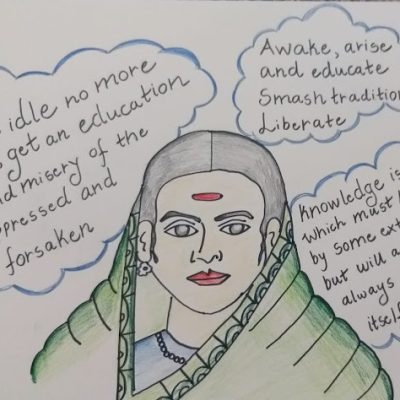 idle no more
get an education
misery of the
pressed and
forsaken
Awake, arise
and educate
Smash tradition
Liberate
Knowledge is
which must
by some ext
but will a
always
itself